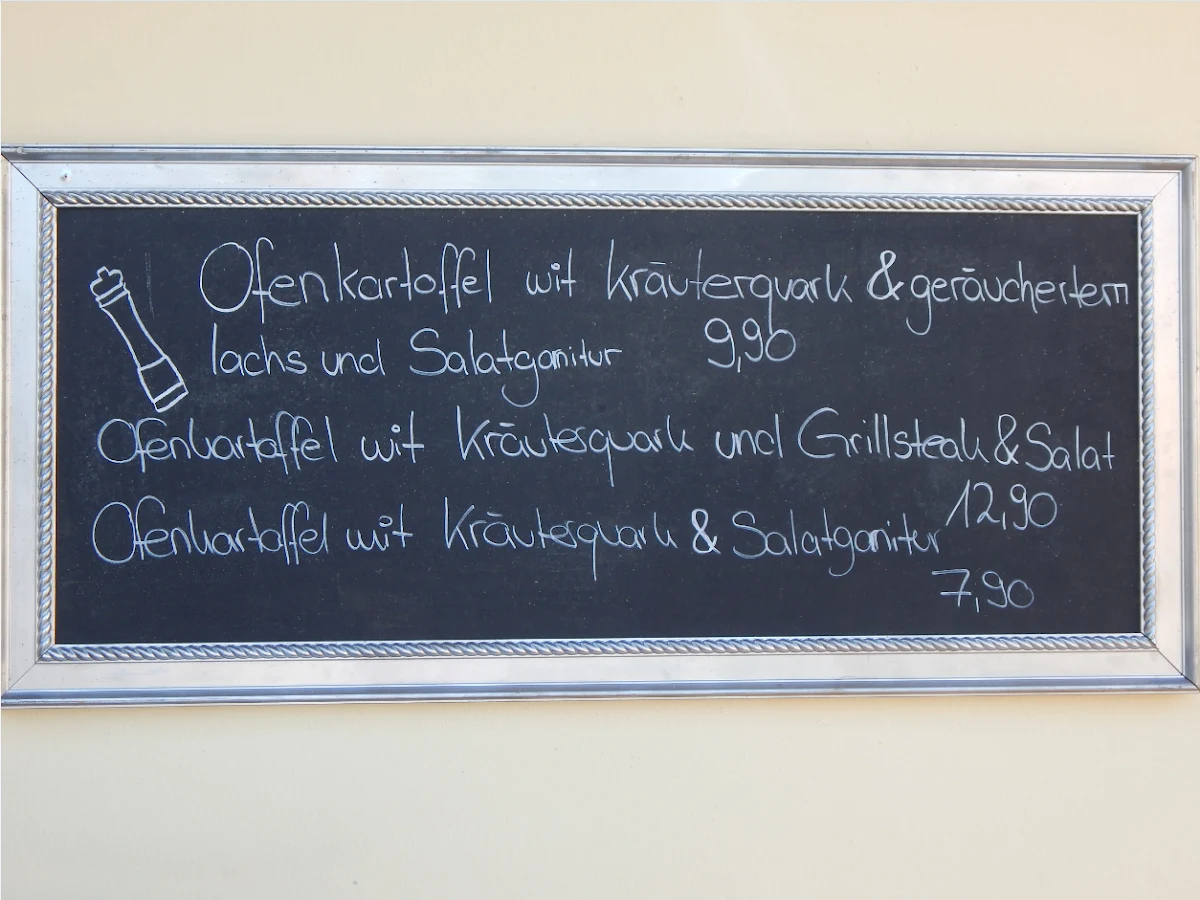 Ofenkartoffel mit Kräuterquark & geräuchertem
lachs und Salatganitur 9,90
Ofenkartoffel mit Kräuterquark und Grillsteak & Salat
12,90
Ofenkartoffel mit Kräuterquark & Salatganitur
7,90